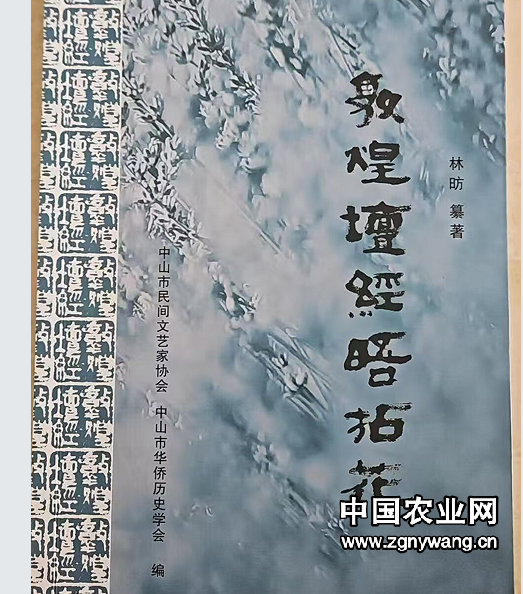 敦煌壇經晤拓
林昉 纂著
中山市民间文艺家协会 中山市华侨历史学会 编
中国农业网
www.zgnywang.cn